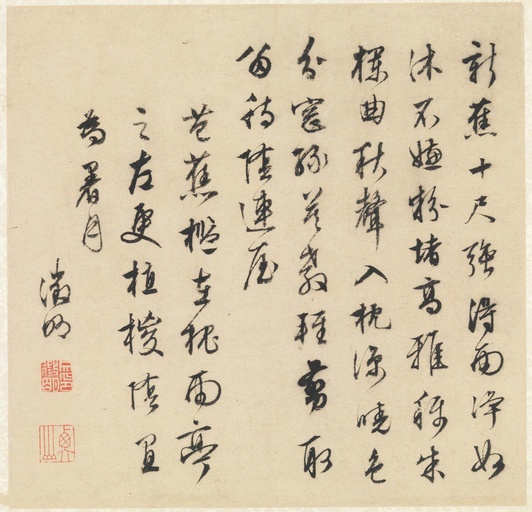 新蕉十尺強得雨淨如
沐不嫌粉堵高雅稱朱
欄曲秋聲入枕涼曉色
分窓綠莫教輕翦取
留待陰連屋
芭蕉檻在槐雨亭
之左更植椶陰宜
為暑月
徵明